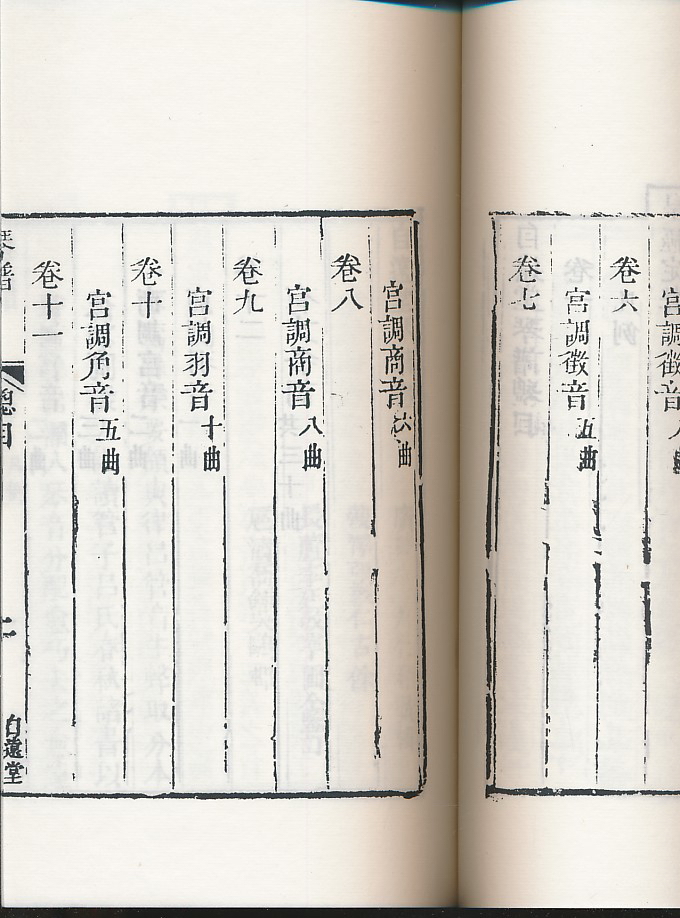 宮調徵音
卷六
宮調徵音 五曲
卷七
宮調商音 六曲
卷八
宮調商音 八曲
卷九
宮調羽音 十曲
卷十
宮調角音 五曲
卷十一
琴譜
總目
自遠堂